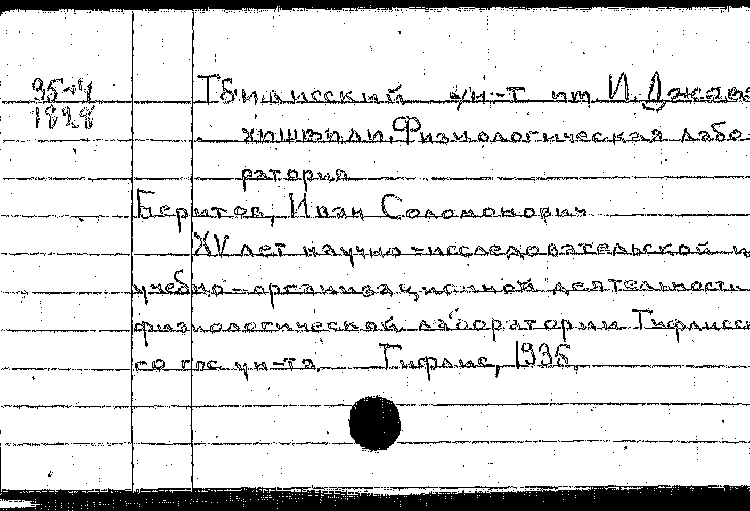 35-4
1828
Тбилисский ун-т им И. Джава
хишвили. Физиологическая лабо-
ратория
Беритов, Иван Соломонович
XV лет научно-исследовательской и
учебно-организационной деятельности
физиологической лаборатории Тифлисск
го гос ун-та. Тифлис, 1935.